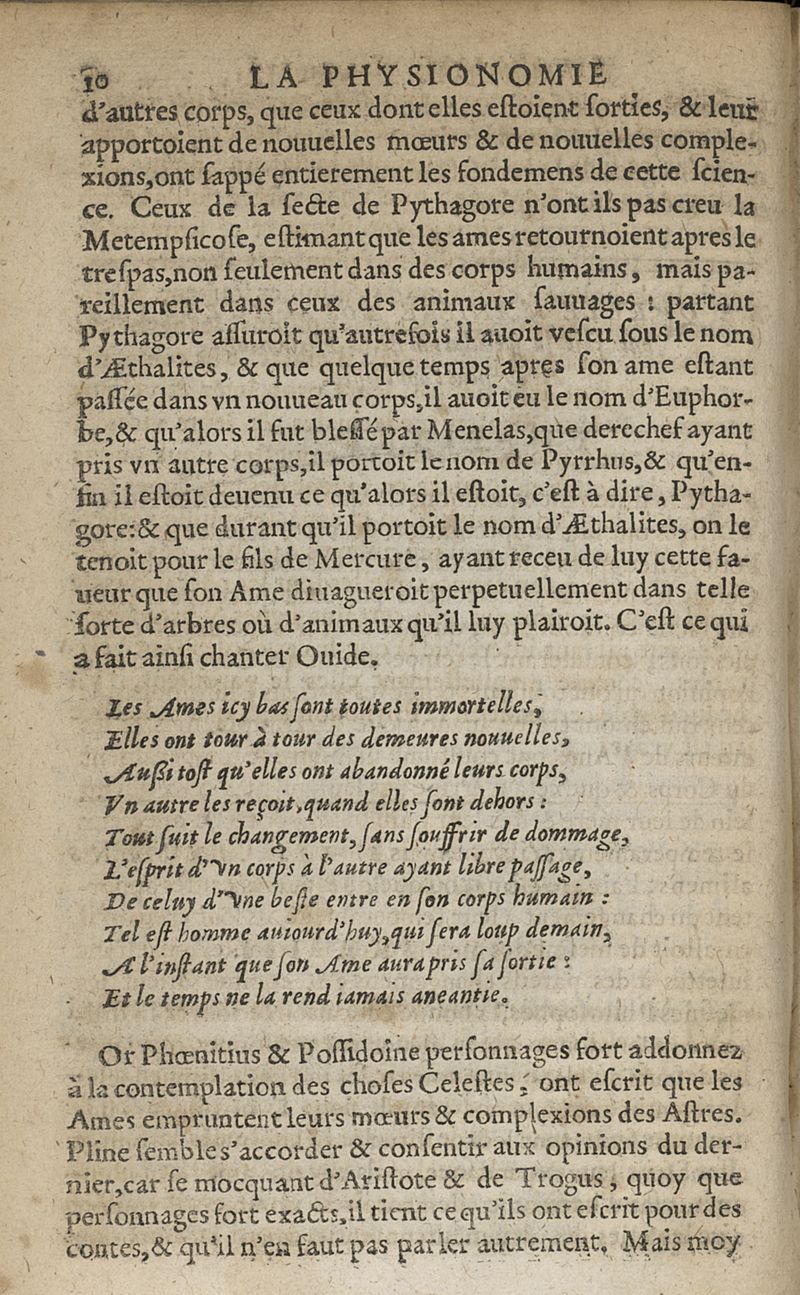 10 LA PHYSIONOMIE
d'autres corps, que ceux dont elles eſtoient ſorties, & leur
apportoient de nouuelles mœurs & de nouuelles comple-
xions,ont ſappé entierement les fondemens de cette ſcien-
ce. Ceux de la ſecte de Pythagore n'ont ils pas creu la
Metempſicoſe, eſtimant que les ames retournoient apres le
treſpas,non ſeulement dans des corps humains, mais pa-
reillement dans ceux des animaux ſauuages : partant
Pythagore aſſuroit qu'autrefois il auoit veſcu ſous le nom
d'Æthalites, & que quelque temps apres ſon ame eſtant
paſſée dans vn nouueau corps,il auoit eu le nom d'Euphor-
be,& qu'alors il fut bleſſé par Menelas,que derechef ayant
pris vn autre corps,il portoit le nom de Pyrrhus,& qu'en-
fin il eſtoit deuenu ce qu'alors il eſtoit, c'eſt à dire, Pytha-
gore:& que durant qu'il portoit le nom d'Æthalites, on le
tenoit pour le fils de Mercure, ayant receu de luy cette fa-
ueur que ſon Ame diuagueroit perpetuellement dans telle
ſorte d'arbres où d'animaux qu'il luy plairoit. C'eſt ce qui
a fait ainſi chanter Ouide.
Les Ames icy bas ſont toutes immortelles,
Elles ont tour à tour des demeures nouuelles,
Auſſi toſt qu'elles ont abandonné leurs corps,
Vn autre les reçoit,quand elles ſont dehors :
Tout ſuit le changement, ſans ſouffrir de dommage,
L'eſprit d'vn corps à l'autre ayant libre paſſage,
De celuy d'vne beſte entre en ſon corps humain :
Tel eſt homme auiourd'huy,qui ſera loup demain,
A l'inſtant que ſon Ame aura pris ſa ſortie :
Et le temps ne la rend iamais aneantie.
Or Phœnitius & Poſſidoine perſonnages fort addonnez
à la contemplation des choſes Celeſtes, ont eſcrit que les
Ames empruntent leurs mœurs & complexions des Aſtres.
Pline ſemble s'accorder & conſentir aux opinions du der-
nier,car ſe mocquant d'Ariſtote & de Trogus, quoy que
perſonnages fort exacts,il tient ce qu'ils ont eſcrit pour des
contes,& qu'il n'en faut pas parler autrement. Mais moy